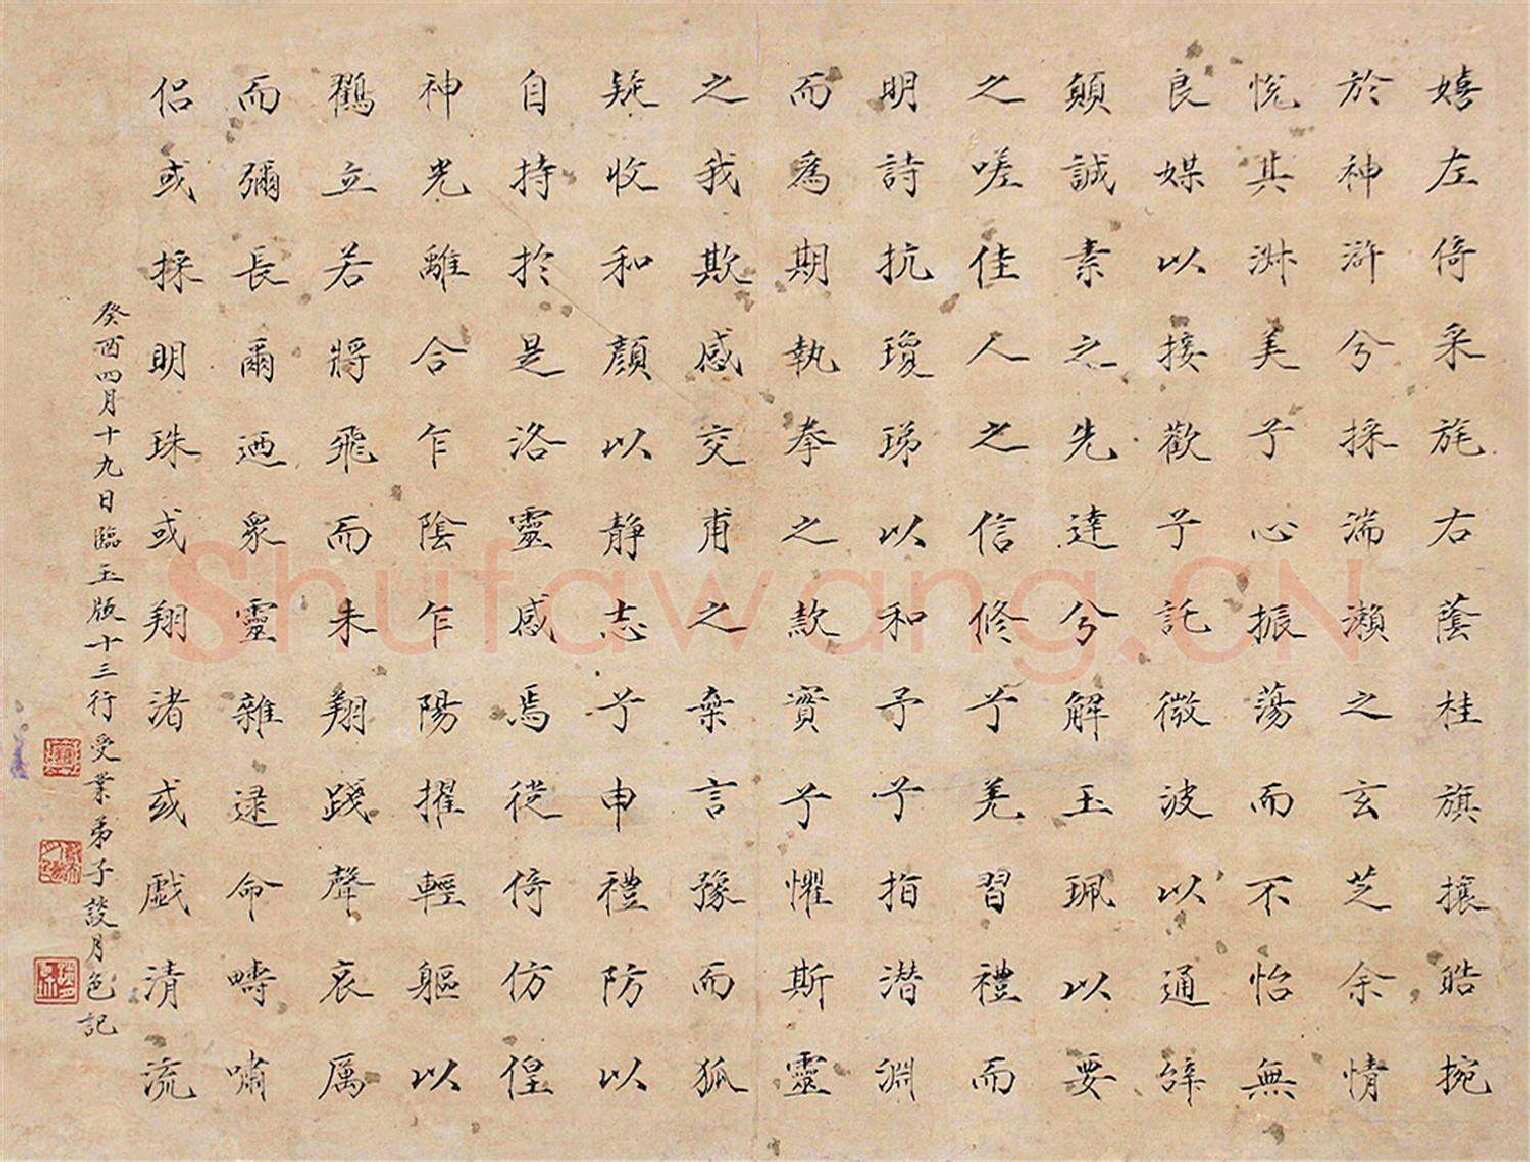 嬉左倚采旄右蔭桂旗攘皓捥
於神滸兮採湍瀨之玄芝余情
悅其淑美兮心振蕩而不怡無
良媒以接歡兮託微波以通辭
願誠素之先達兮解玉珮以要
之嗟佳人之信修兮羌習禮而
明詩抗瓊珶以和予兮指潛淵
而爲期執拳之款實兮懼斯靈
之我欺感交甫之棄言豫而狐
疑收和顏以靜志兮申禮防以
自持於是洛靈感焉徙倚仿偟
神光離合乍陰乍陽擢輕軀以
鶴立若將飛而未翔踐聲哀厲
而彌長爾迺眾靈雜逮命疇嘯
侶或採明珠或翔渚或戯清流
癸酉四月十九日臨玉版十三行受業弟子談月色記
Shufawang.CN